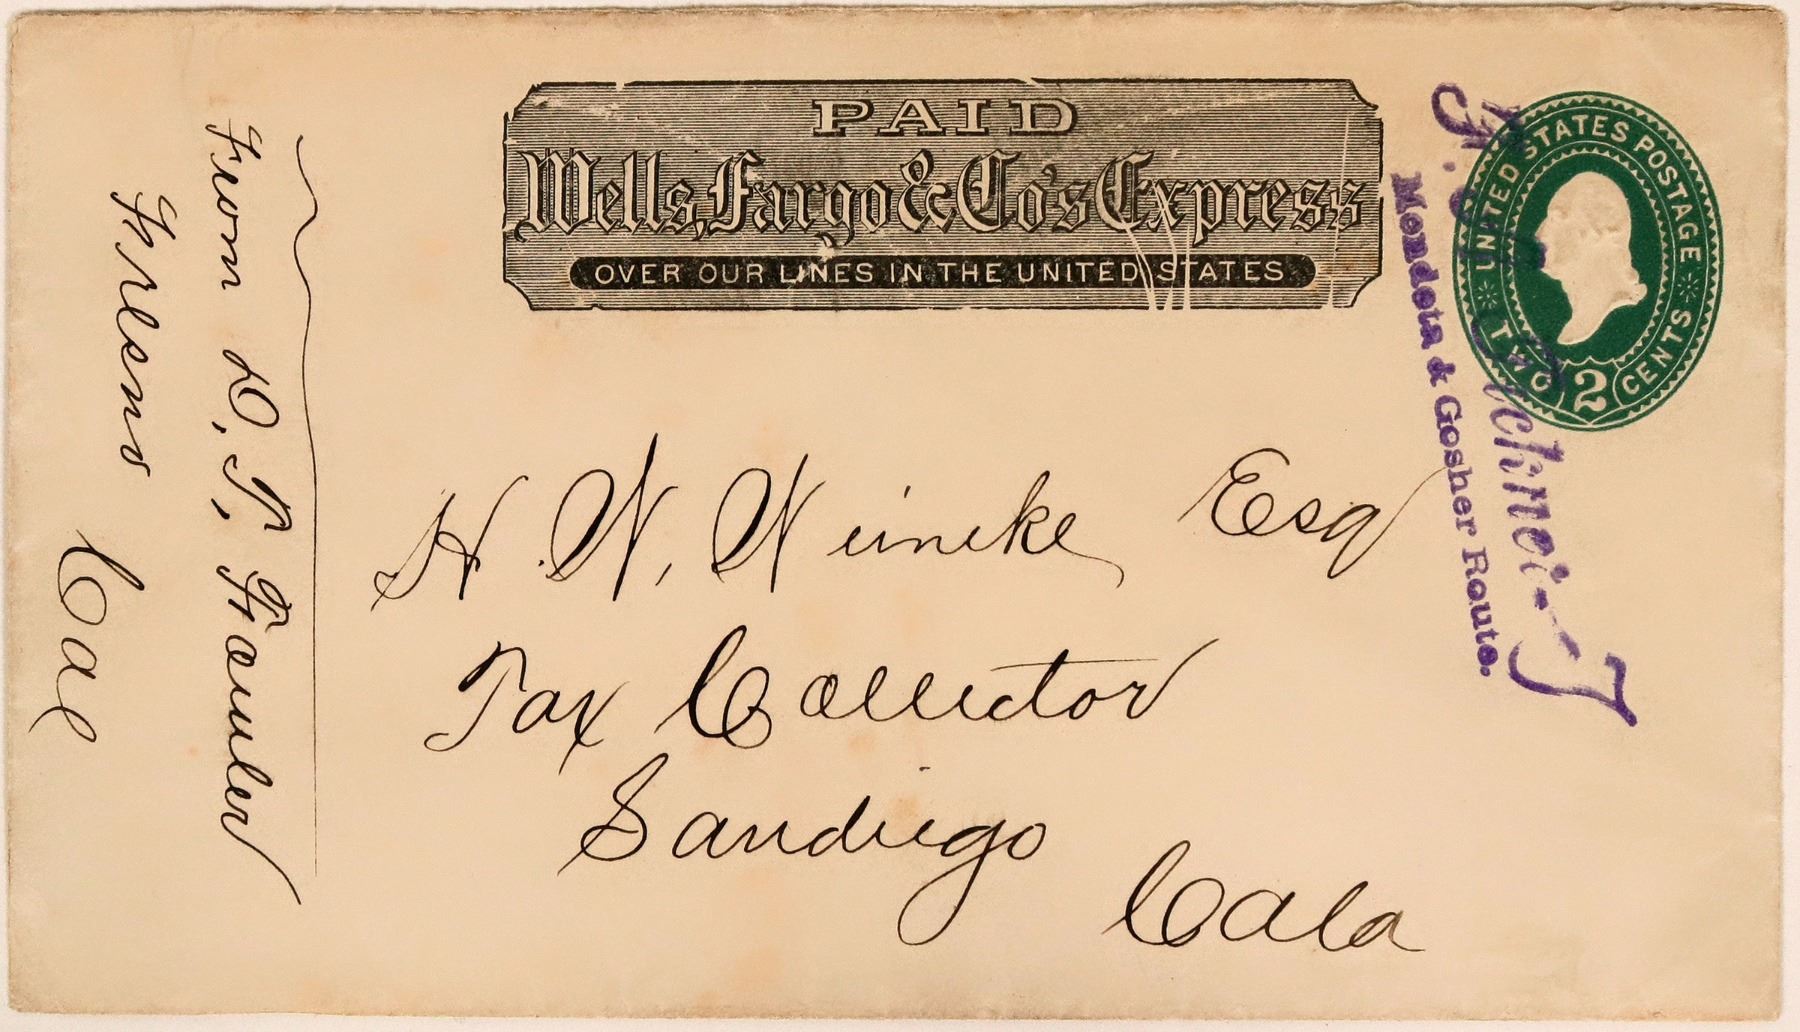 PAID
Wells, Fargo & Co's Express
OVER OUR LINES IN THE UNITED STATES.
UNITED STATES POSTAGE
TWO 2 CENTS
Mendota & Gosher Route.
H. W. Weineke Esq
Tax Collector
Sandiego
Cala
From D. T. Fowler
Fresno Cal